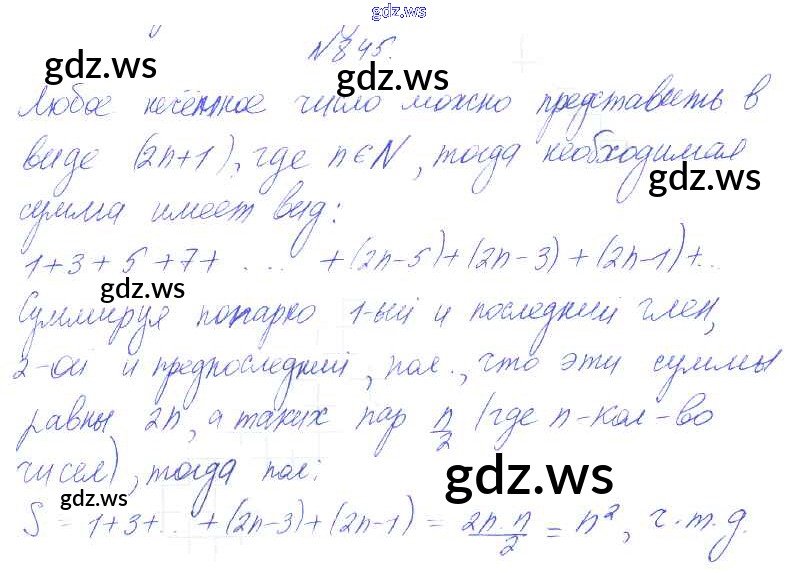 gdz.ws
№845.
gdz.ws gdz.ws
Любое нечётное число можно представить в
виде (2n+1), где n∈N, тогда необходимая
gdz.ws
сумма имеет вид:
1+3+5+7+ .... +(2n-5)+(2n-3)+(2n-1)+..
gdz.ws
Суммируя попарно 1-ый и последний член,
2-ой и предпоследний, пол., что эти суммы
равны 2n, а таких пар n/2 (где n-кол-во
чисел), тогда пол:
gdz.ws
gdz.ws
S = 1+3+..+(2n-3)+(2n-1) = 2n·n/2 = n², ч.т.д.